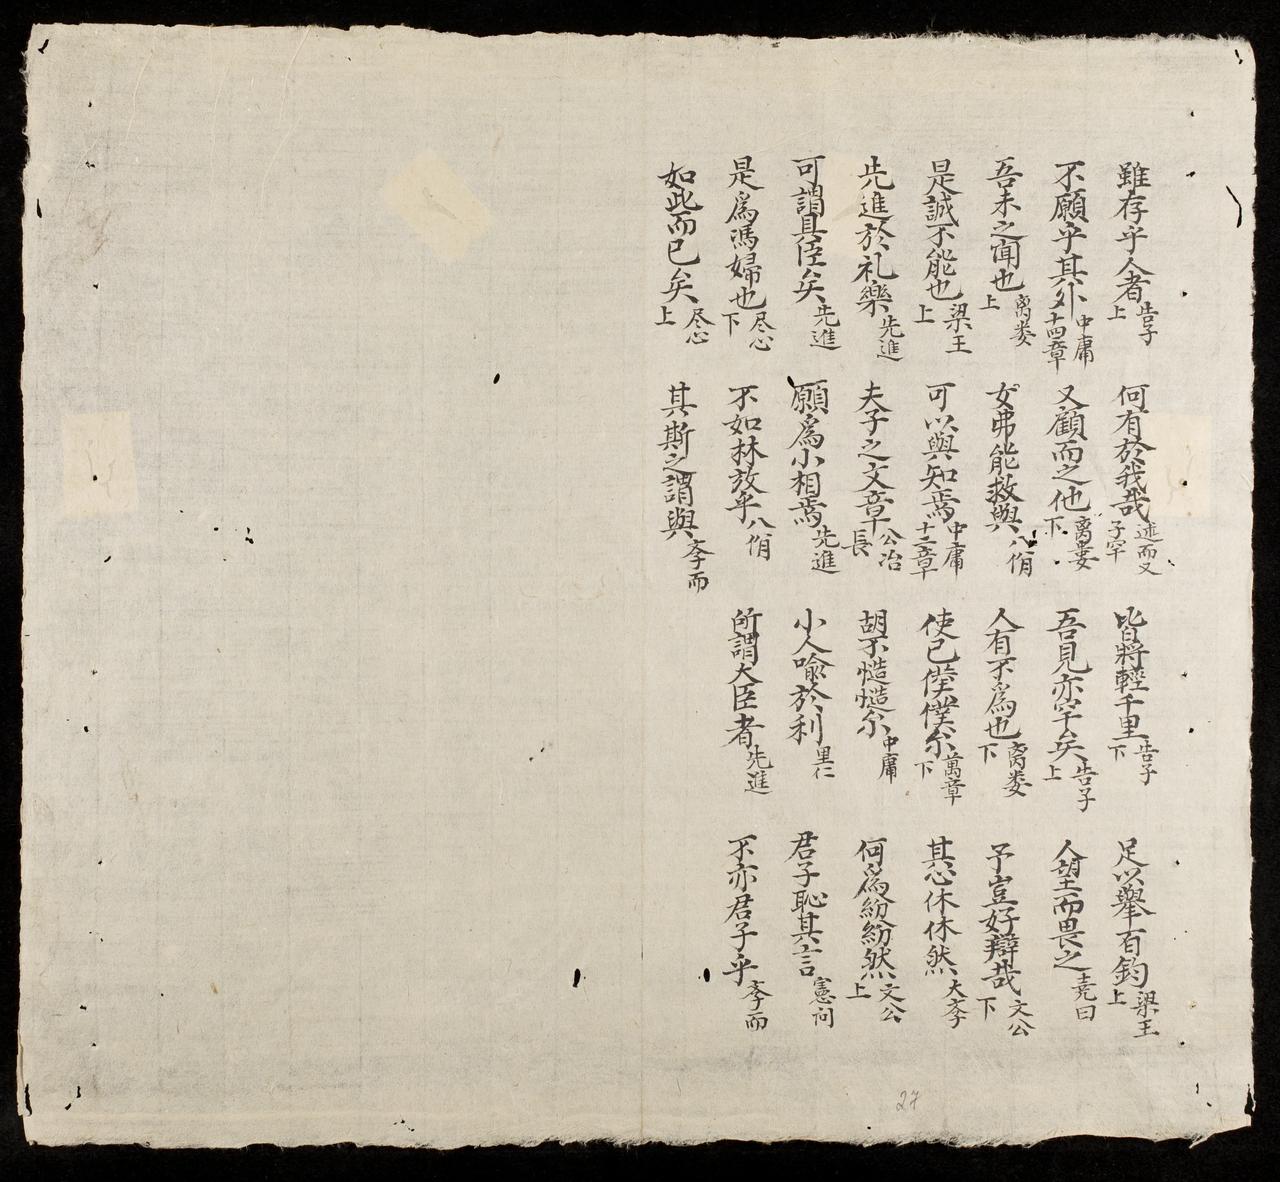 雖存乎人者告子上 何有於我哉述而又子罕 皆將輕千里告子下 足以擧百鈞梁王上
不願乎其外中庸十四章 又顧而之他离婁下 吾見亦罕矣告子上 人望而畏之堯曰
吾未之聞也离娄上 女弗能救與八佾 人有不爲也离娄下 予豈好辯哉文公下
是誠不能也梁王上 可以與知焉中庸十二章 使己僕僕尓萬章下 其心休休然大斈
先進於礼樂先進 夫子之文章公冶長 胡不慥慥尓中庸 何爲紛紛然文公上
可謂具臣矣先進 願爲小相焉先進 小人喩於利里仁 君子恥其言憲问
是爲馮婦也尽心下 不如林放乎八佾 所謂大臣者先進 不亦君子乎斈而
如此而已矣尽心上 其斯之謂與斈而
27